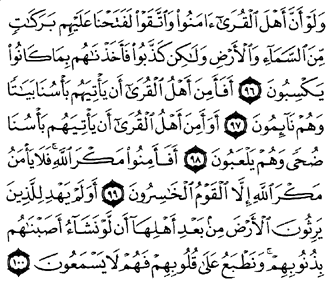 وَلَوْ أَنَّ أَهْلَ الْقُرَىٰ ءَامَنُوا وَاتَّقَوْا لَفَتَحْنَا عَلَيْهِم بَرَكَٰتٍ
مِّنَ السَّمَآءِ وَالْأَرْضِ وَلَٰكِن كَذَّبُوا فَأَخَذْنَٰهُم بِمَا كَانُوا
يَكْسِبُونَ ٩٦ أَفَأَمِنَ أَهْلُ الْقُرَىٰٓ أَن يَأْتِيَهُم بَأْسُنَا بَيَٰتًا
وَهُمْ نَآئِمُونَ ٩٧ أَوَأَمِنَ أَهْلُ الْقُرَىٰٓ أَن يَأْتِيَهُم بَأْسُنَا
ضُحًى وَهُمْ يَلْعَبُونَ ٩٨ أَفَأَمِنُوا مَكْرَ اللَّهِ ۚ فَلَا يَأْمَنُ
مَكْرَ اللَّهِ إِلَّا الْقَوْمُ الْخَٰسِرُونَ ٩٩ أَوَلَمْ يَهْدِ لِلَّذِينَ
يَرِثُونَ الْأَرْضَ مِنۢ بَعْدِ أَهْلِهَآ أَن لَّوْ نَشَآءُ أَصَبْنَٰهُم
بِذُنُوبِهِمْ ۚ وَنَطْبَعُ عَلَىٰ قُلُوبِهِمْ فَهُمْ لَا يَسْمَعُونَ ١٠٠